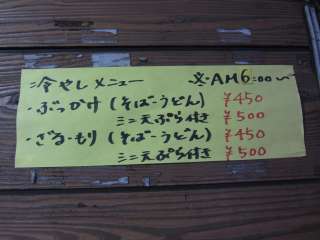 冷やしメニュー ※AM6:00〜
・ぶっかけ(そば・うどん) ¥450
ミニ天ぷら付き ¥500
・ざる・もり(そば・うどん) ¥450
ミニ天ぷら付き ¥500